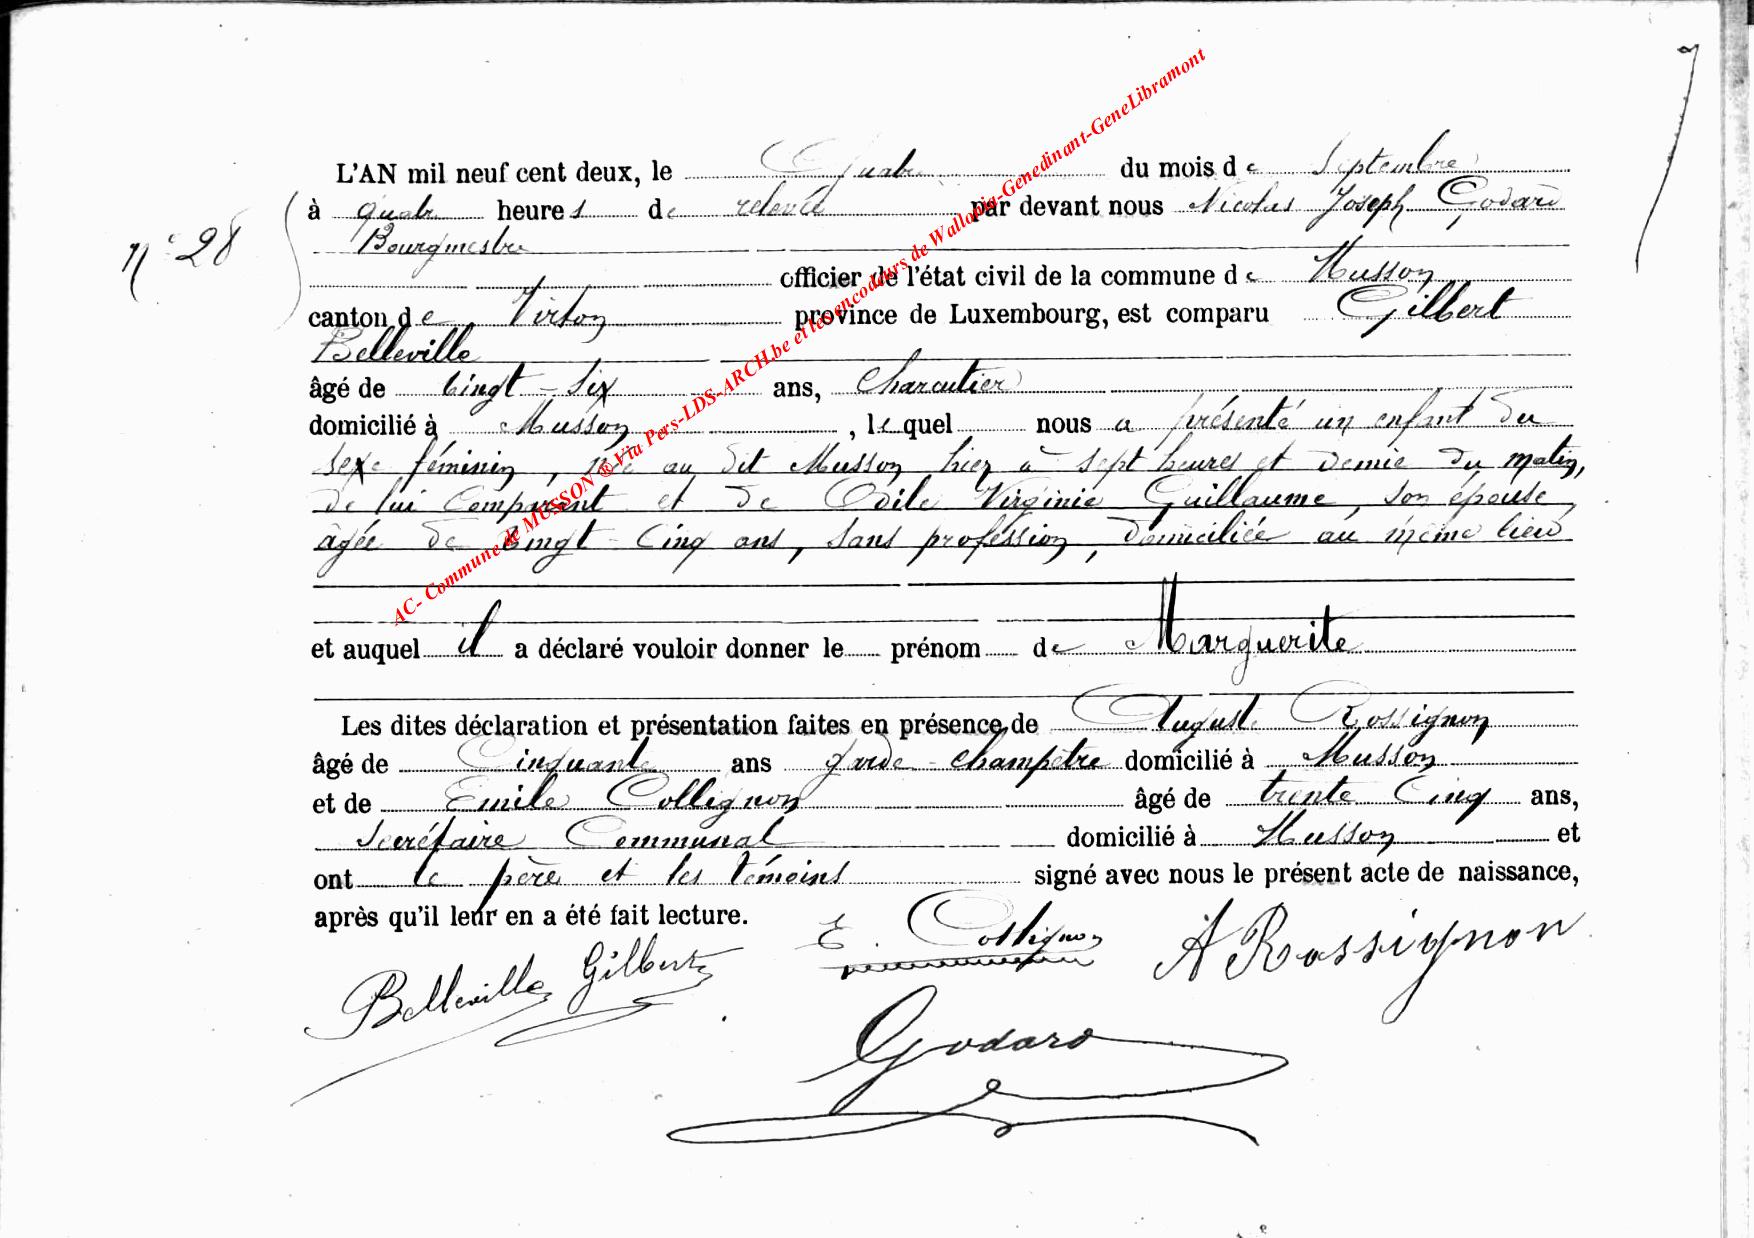 L'AN mil neuf cent deux, le Quatre du mois de Septembre
à quatre heures de relevée par devant nous Nicolas Joseph Godard
N° 28
Bourgmestre
officier de l'état civil de la commune de Musson
canton de Virton province de Luxembourg, est comparu Gilbert
Belleville
âgé de vingt-six ans, Charcutier
domicilié à Musson, lequel nous a présenté un enfant du
sexe féminin, née au dit Musson hier à sept heures et demie du matin,
de lui Comparant et de Odile Virginie Guillaume, son épouse,
âgée de vingt-Cinq ans, sans profession, domiciliée au même lieu
et auquel il a déclaré vouloir donner le prénom de Marguerite
Les dites déclaration et présentation faites en présence de Auguste Rossignon
âgé de Cinquante ans garde-champêtre domicilié à Musson
et de Emile Collignon âgé de trente Cinq ans,
Secrétaire Communal domicilié à Musson et
ont le père et les témoins signé avec nous le présent acte de naissance,
après qu'il leur en a été fait lecture.
Belleville Gilbert E. Collignon A Rossignon
Godard
AC- Commune de MUSSON ® Via Pers-LDS-ARCH.be et les encodeurs de Wallonia-Genedinant-GeneLibramont